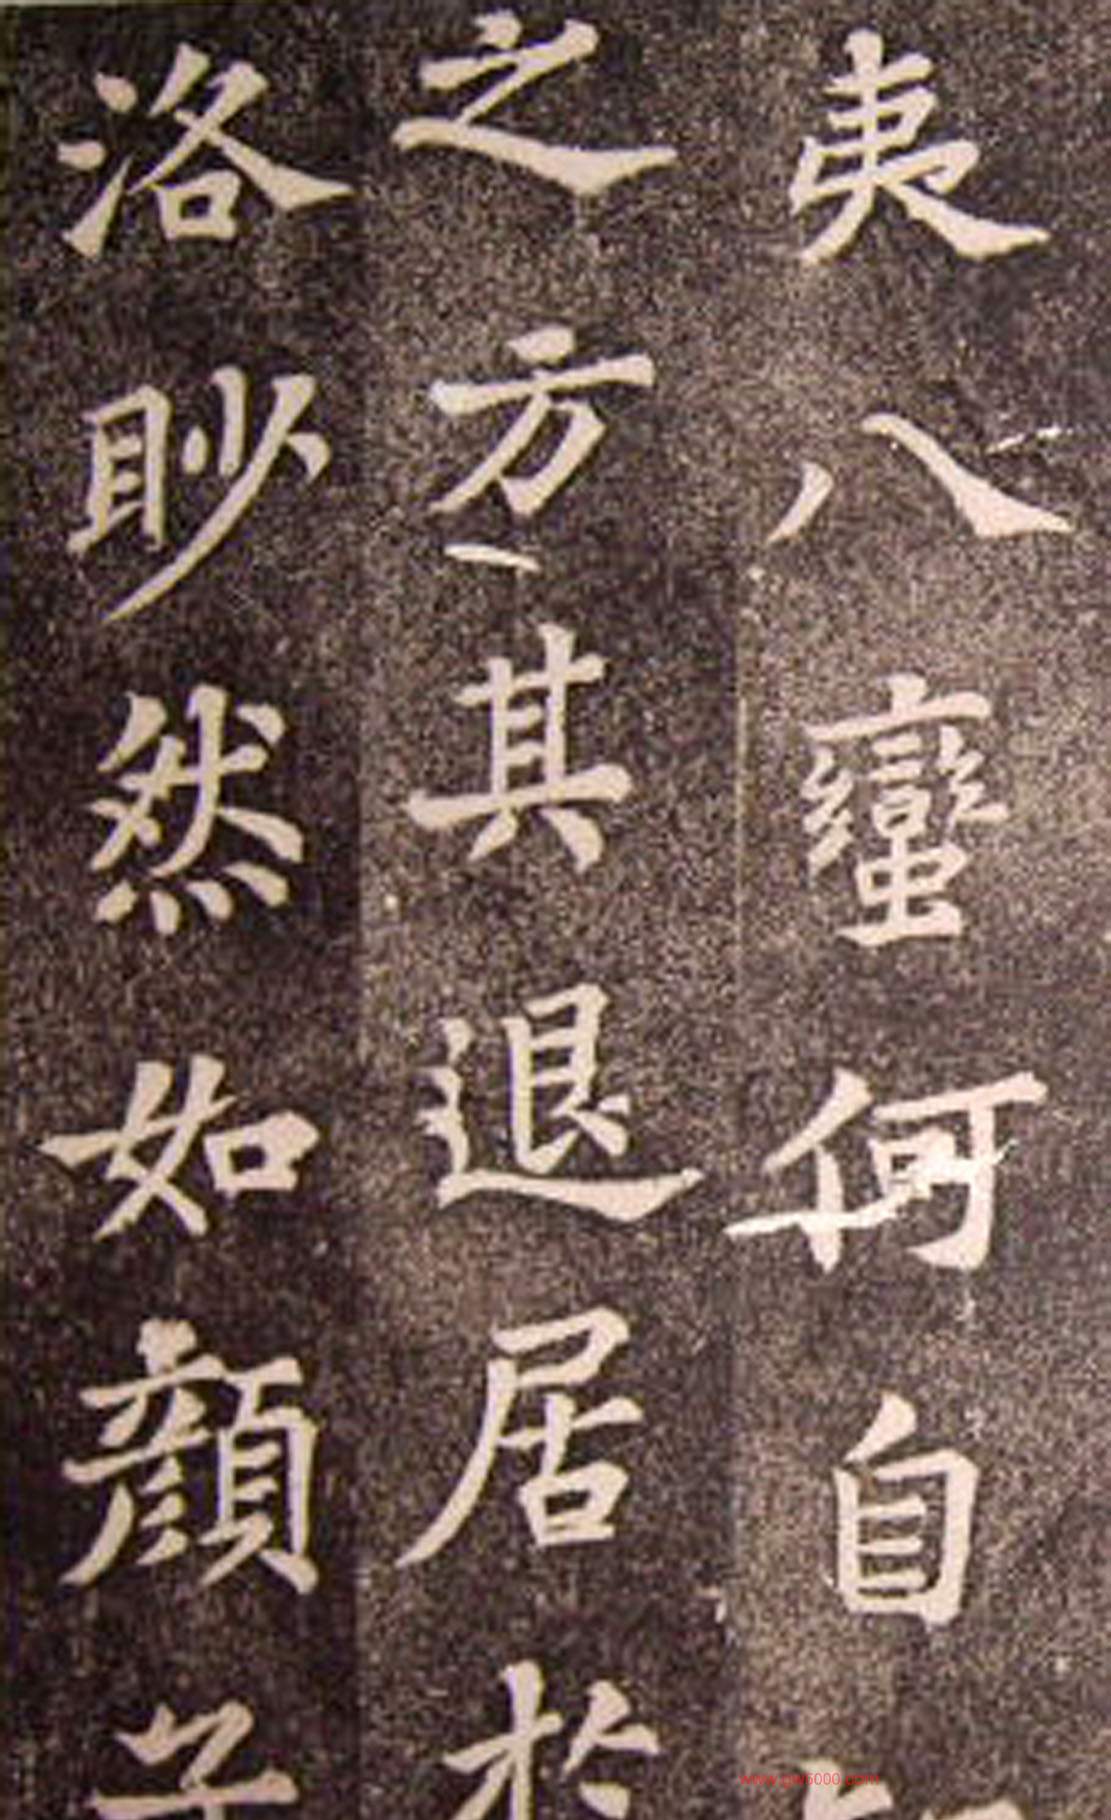 夷八蠻何自
之方其退居於
洛眇然如顏子
www.gw5000.com